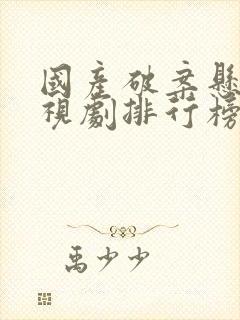 國產破案懸
視劇排行榜
禹少少